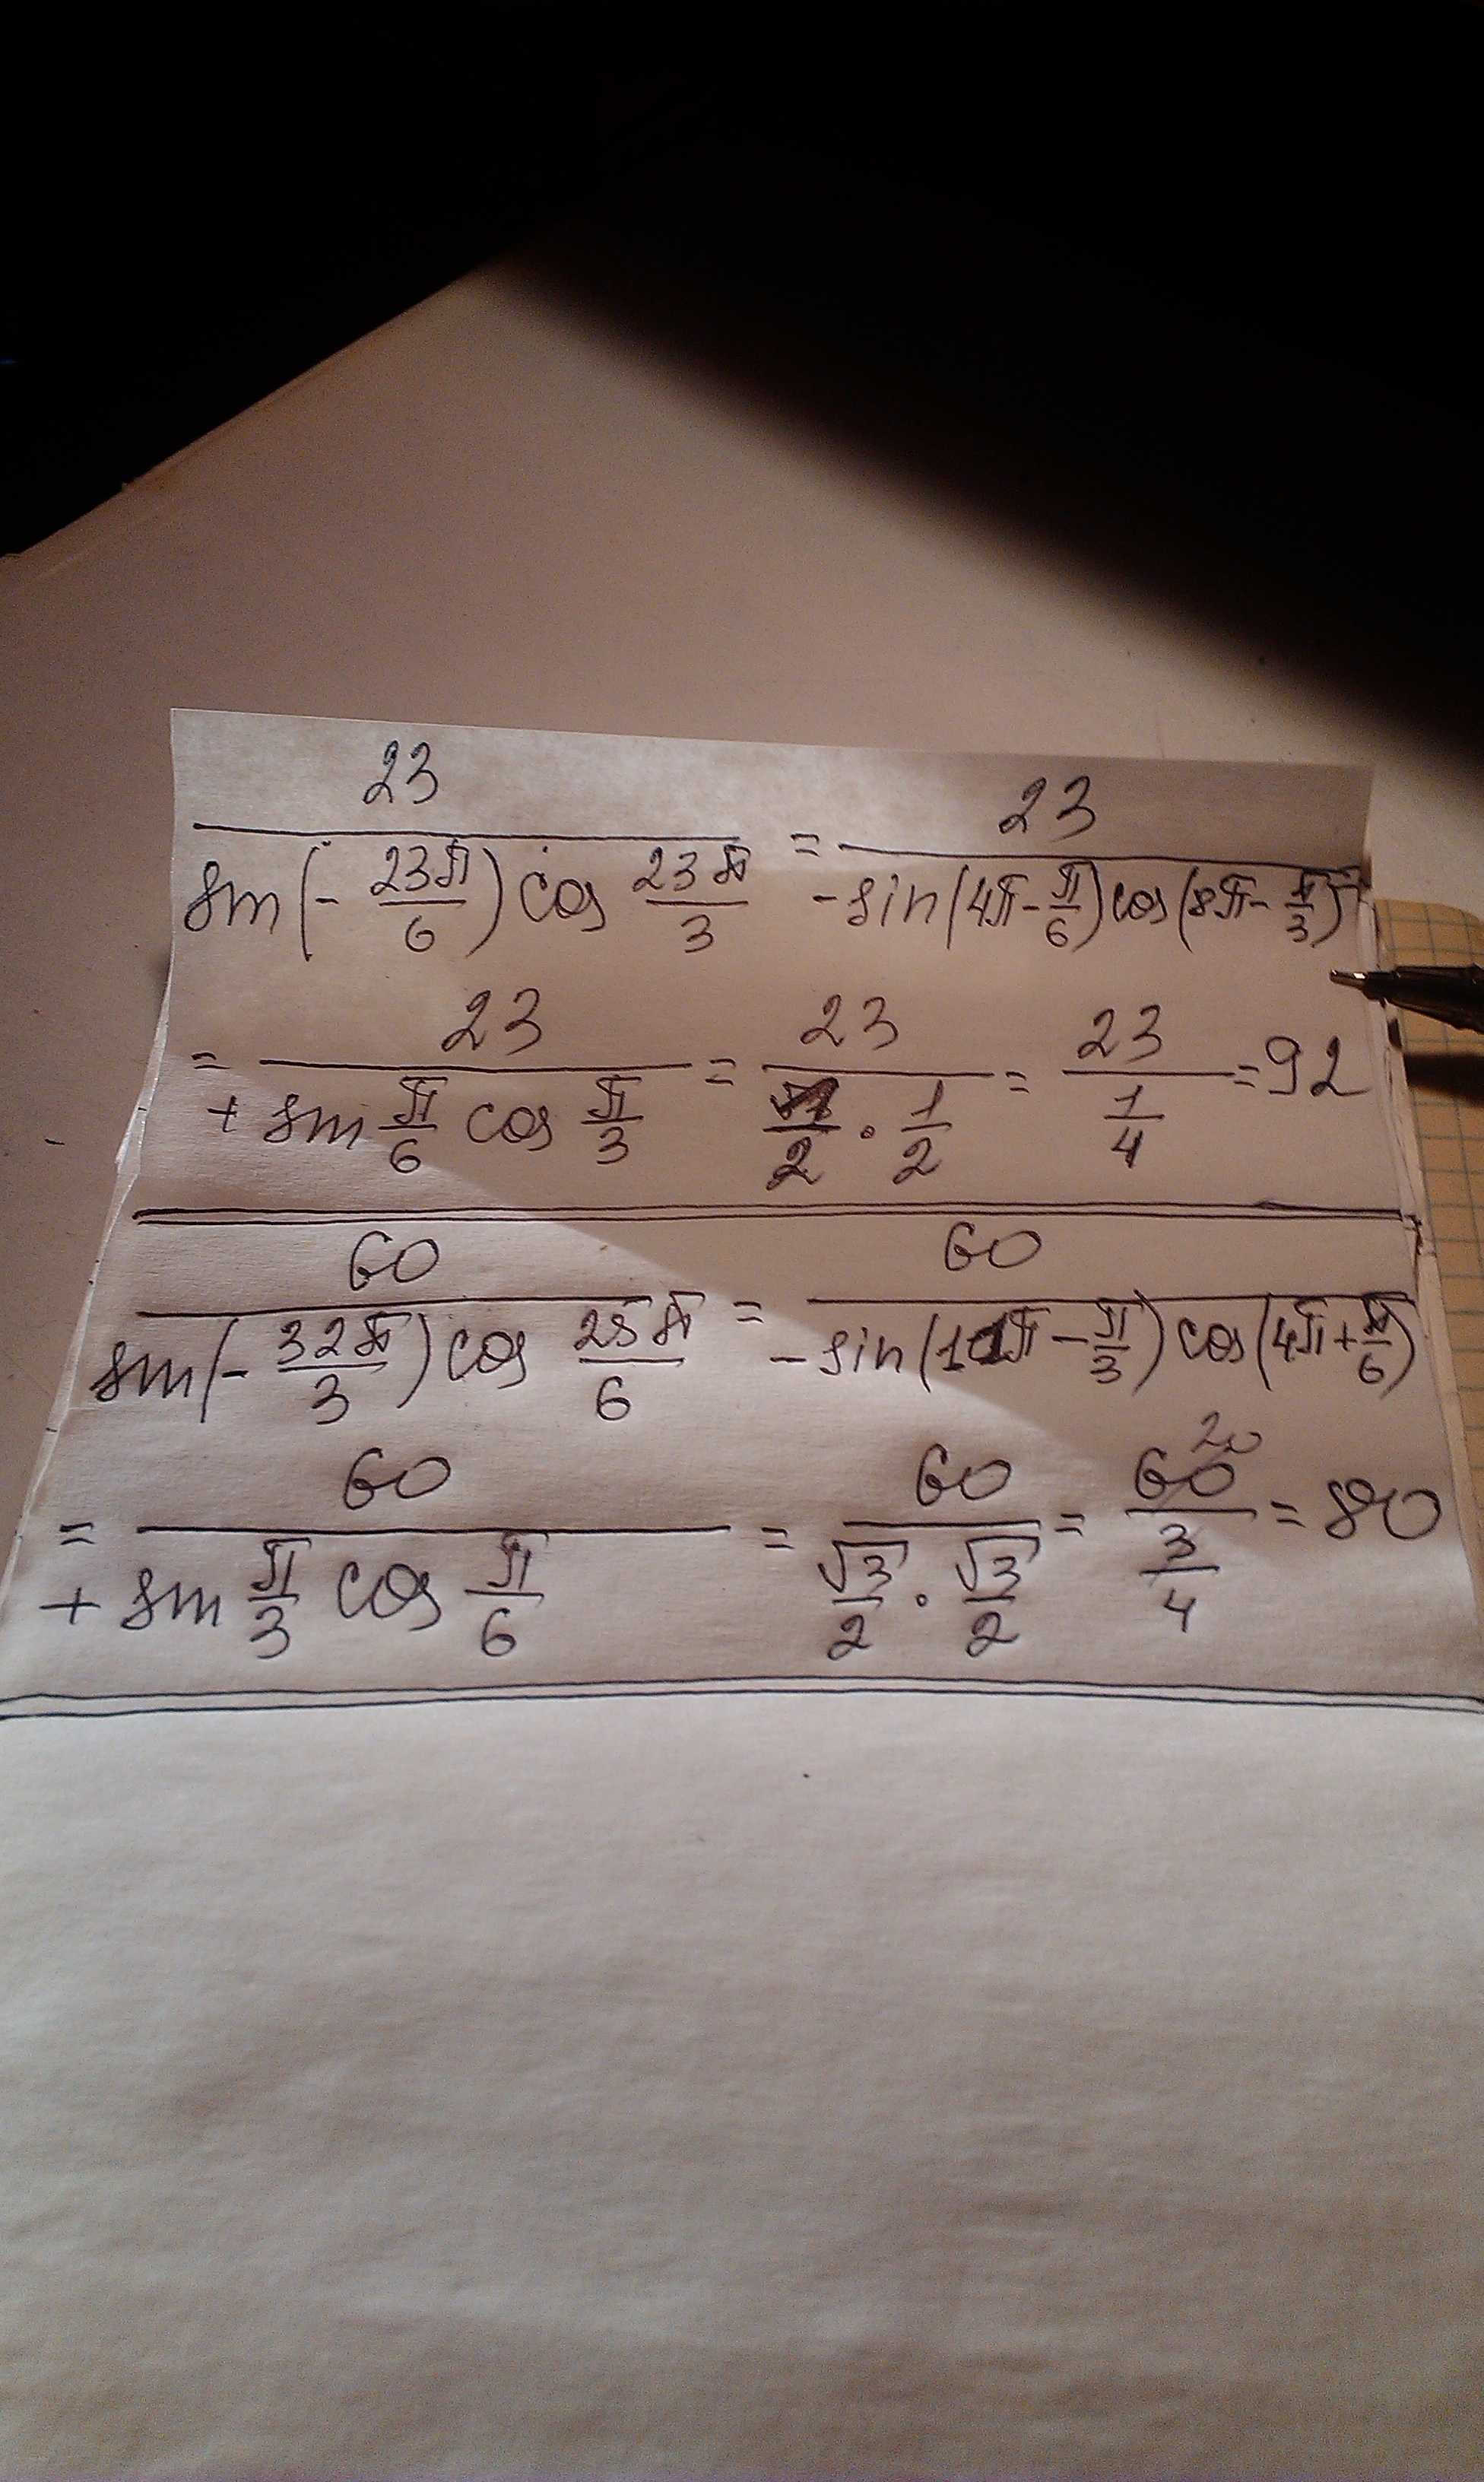 23/(sin(-23π/6) cos 23π/3) = 23/(-sin(4π-π/6)cos(8π-π/3)) =
= 23/(+ sin π/6 cos π/3) = 23/(1/2 · 1/2) = 23/(1/4) = 92
60/(sin(-32π/3) cos 25π/6) = 60/(-sin(11π-π/3) cos(4π+π/6))
= 60/(+ sin π/3 cos π/6) = 60/(√3/2 · √3/2) = 60 20/(3/4) = 80